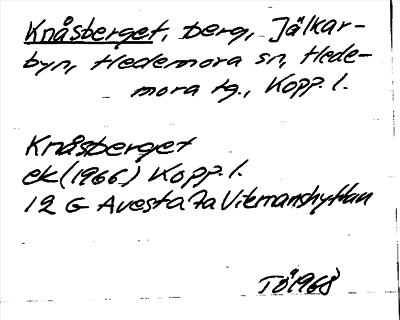 Knåsberget, berg, Jälkar-
byn, Hedemora sn, Hede-
mora tg., Kopp. l.
Knåsberget
ek (1966) Kopp. l.
12 G Avesta 7a Vikmanshyttan
TÖ 1968